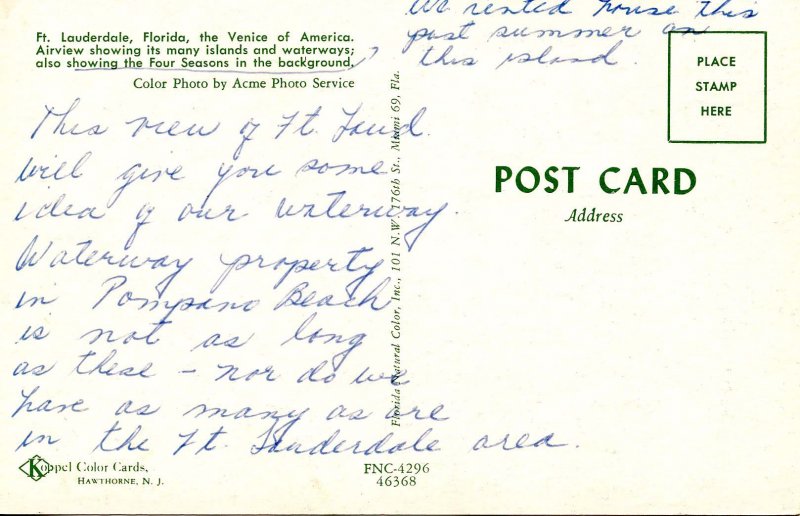 We rented house this
past summer on
this island.
Ft. Lauderdale, Florida, the Venice of America.
Airview showing its many islands and waterways;
also showing the Four Seasons in the background.
Color Photo by Acme Photo Service
PLACE
STAMP
HERE
This view of Ft. Laud.
will give you some
idea of our waterway.
Waterway property
in Pompano Beach
is not as long
as these - nor do we
have as many as are
in the Ft. Lauderdale area.
Florida Natural Color, Inc., 101 N.W. 176th St., Miami 69, Fla.
POST CARD
Address
K
Koppel Color Cards,
HAWTHORNE, N. J.
FNC-4296
46368